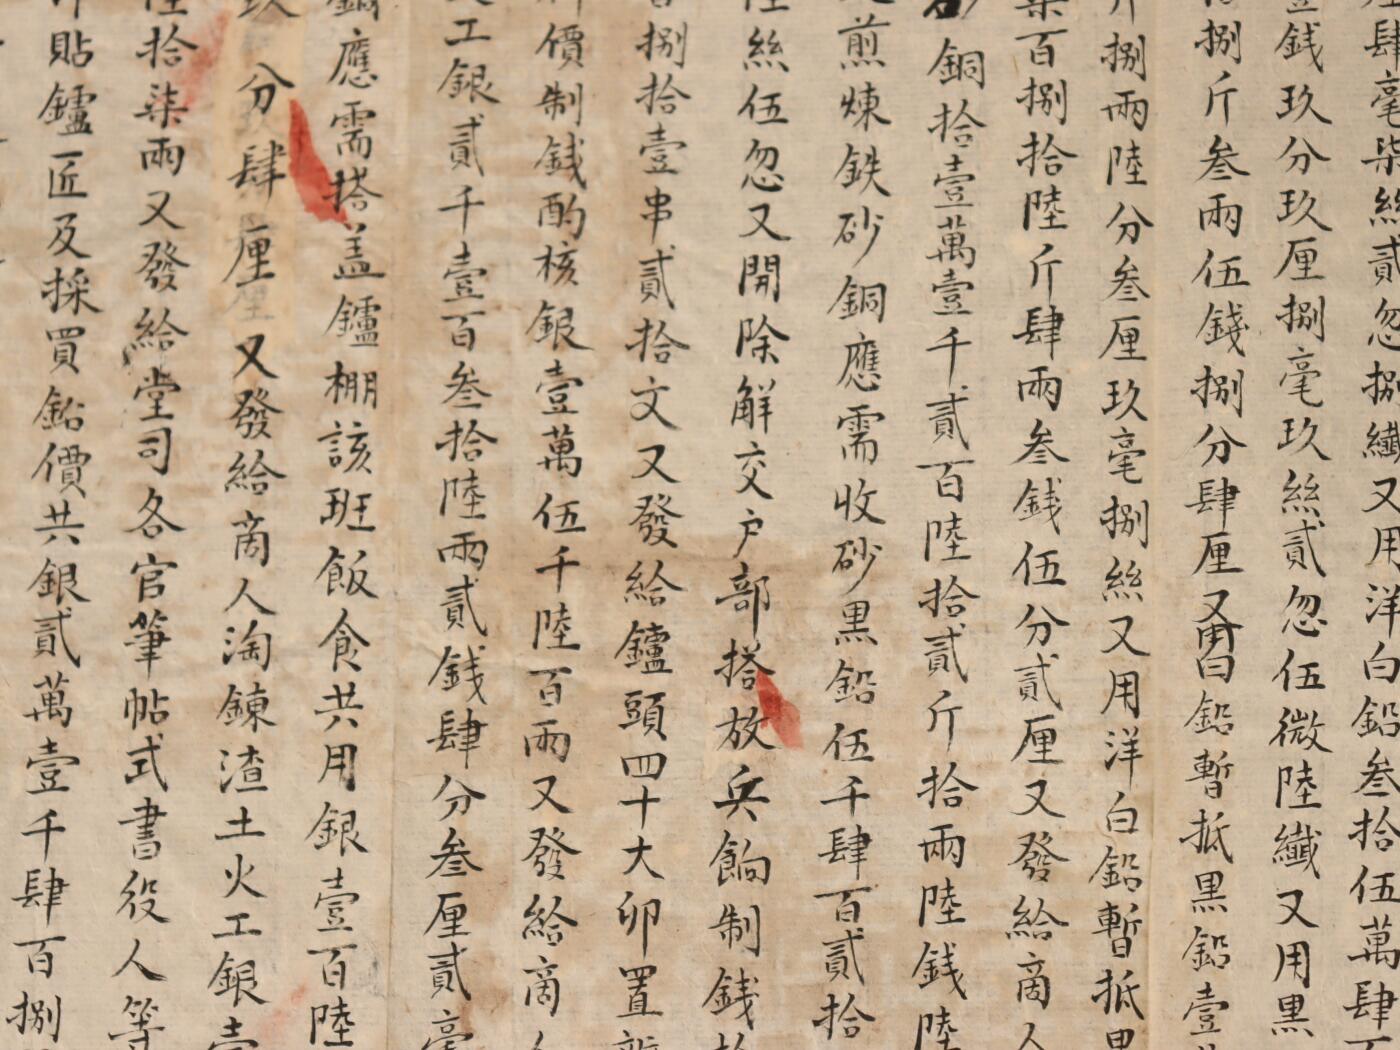 肆毫柒絲貳忽捌纖又用洋白鉛叁拾伍萬肆
錢玖分玖厘捌毫玖絲貳忽伍微陸纖又用黑
捌斤叁兩伍錢捌分肆厘又用白鉛暫抵黑鉛壹
捌兩陸分叁厘玖毫捌絲又用洋白鉛暫抵
柒百捌拾陸斤肆兩叁錢伍分貳厘又發給商人
銅拾壹萬壹千貳百陸拾貳斤拾兩陸錢陸
煎煉鉄砂銅應需收砂黑鉛伍千肆百貳拾
絲伍忽又開除解交户部搭放兵餉制錢
捌拾壹串貳拾文又發給鑪頭四十大卯置
價制錢酌核銀壹萬伍千陸百兩又發給商人
工銀貳千壹百叁拾陸兩貳錢肆分叁厘貳毫
應需搭盖鑪棚該班飯食共用銀壹百陸
玖分肆厘又發給商人淘鍊渣土火工銀壹
陸拾柒兩又發給堂司各官筆帖式書役人等
貼鑪匠及採買鉛價共銀貳萬壹千肆百捌